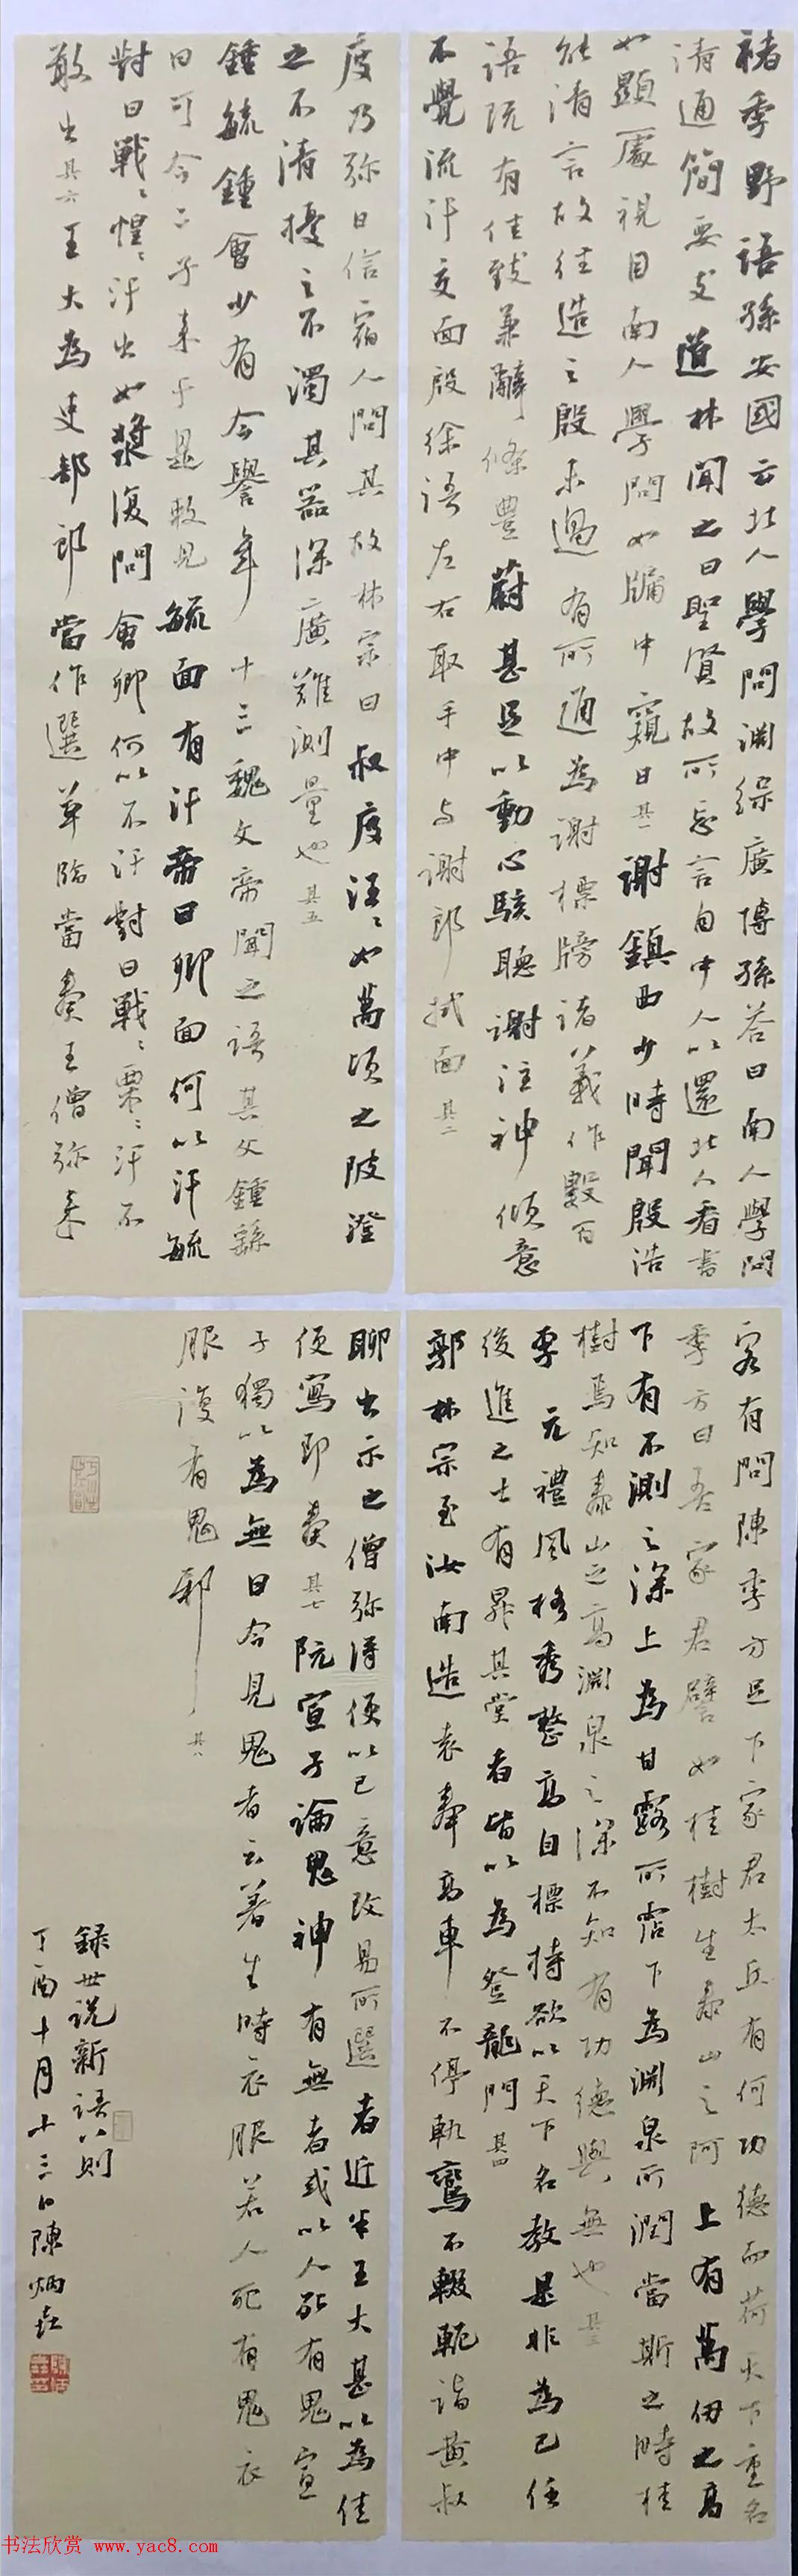 褚季野語孫安國云北人學問淵綜廣博孫答曰南人學問
清通簡要支道林聞之曰聖賢故所忘言自中人以還北人看書
如顯處視月南人學問如牖中窺日其一謝鎮西少時聞殷浩
能清言故往造之殷未過有所通為謝標牓諸義作數百
語既有佳致兼辭條豐蔚甚足以動心駭聽謝注神傾意
不覺流汗交面殷徐語左右取手巾與謝郎拭面其二
客有問陳季方足下家君太丘有何功德而荷天下重名
季方曰吾家君譬如桂樹生泰山之阿上有萬仞之高
下有不測之深上為甘露所霑下為淵泉所潤當斯之時桂
樹焉知泰山之高淵泉之深不知有功德與無也其三
李元禮風格秀整高自標持欲以天下名教是非為己任
後進之士有昇其堂者皆以為登龍門其四
郭林宗至汝南造袁奉高車不停軌鸞不輟軛詣黃叔
度乃彌日信宿人問其故林宗曰叔度汪汪如萬頃之陂澄
之不清擾之不濁其器深廣難測量也其五
鍾毓鍾會少有令譽年十三魏文帝聞之語其父鍾繇
曰可令二子来于是敕見毓面有汗帝曰卿面何以汗毓
對曰戰戰惶惶汗出如漿復問會卿何以不汗對曰戰戰栗栗汗不
敢出其六王大為吏部郎嘗作選草臨當奏王僧彌来
聊出示之僧彌得便以己意改易所選者近半王大甚以為佳
便寫即奏其七阮宣子論鬼神有無者或以人死有鬼宣
子獨以為無曰今見鬼者云著生時衣服若人死有鬼衣
服復有鬼邪其八
録世説新語八則
丁酉十月十三日陳炳垚
书法欣赏 www.yac8.com